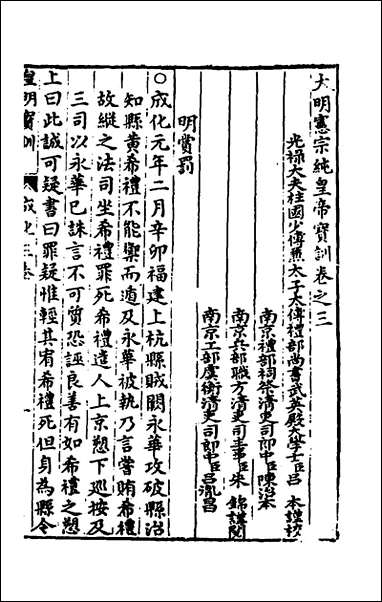 大明憲宗純皇帝寶訓卷之三
光祿大夫柱國少傅兼太子太傅禮部尚書武英殿大學士臣呂 本謹校
南京禮部祠祭清吏司郎中臣陳治本
南京兵部職方清吏司主事臣朱 錦謹閱
南京工部虞衡清吏司郎中臣呂胤昌
明賞罰
○成化元年二月辛卯福建上杭縣賊闕永華攻破縣治
知縣黃希禮不能禦而遁及永華被執乃言嘗賄希禮
故縱之法司坐希禮罪死希禮遣人上京愬下巡按及
三司以永華已誅言不可質恐誣良善有如希禮之愬
上曰此誠可疑書曰罪疑惟輕其宥希禮死但身為縣令
皇明寶訓 成化三卷 一